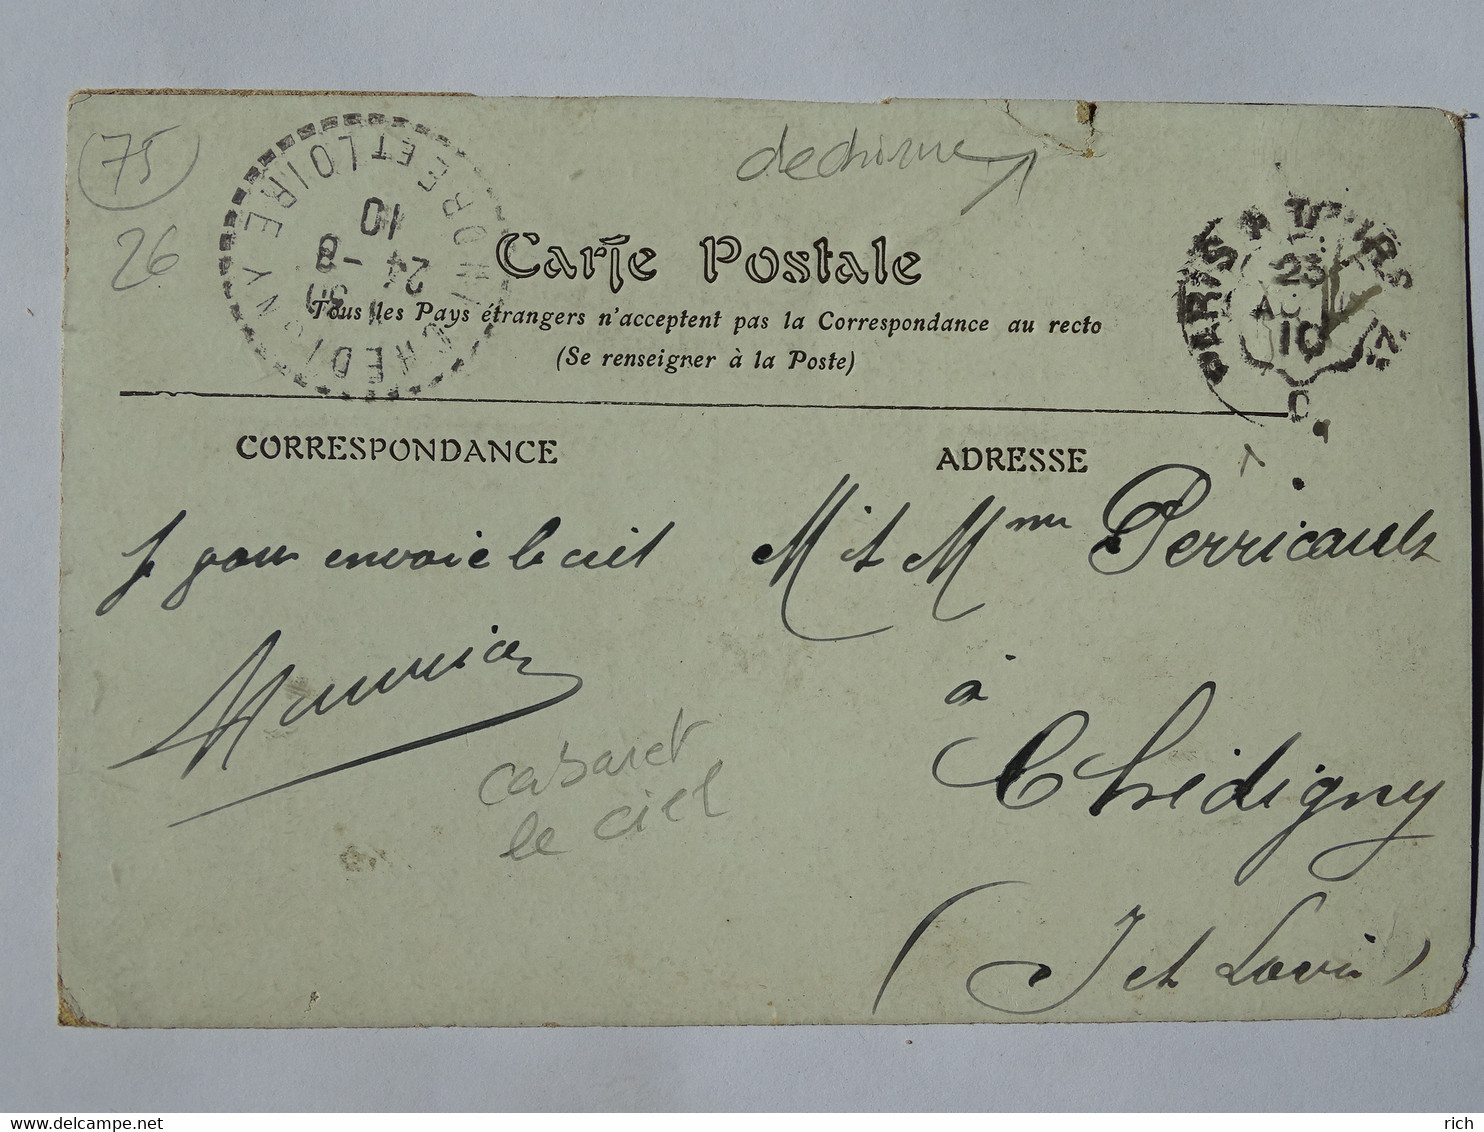 75
26
dechirure
CHEDIGNY INDRE ET LOIRE
24 -8
10
PARIS A TOURS
23
AOUT
10
Carte Postale
Tous les Pays étrangers n'acceptent pas la Correspondance au recto
(Se renseigner à la Poste)
CORRESPONDANCE
ADRESSE
J vous envoie le ciel
Maurice
cabaret
le ciel
M et Mme Perricault
à
Chédigny
(I et Loire)
www.delcampe.net
rich